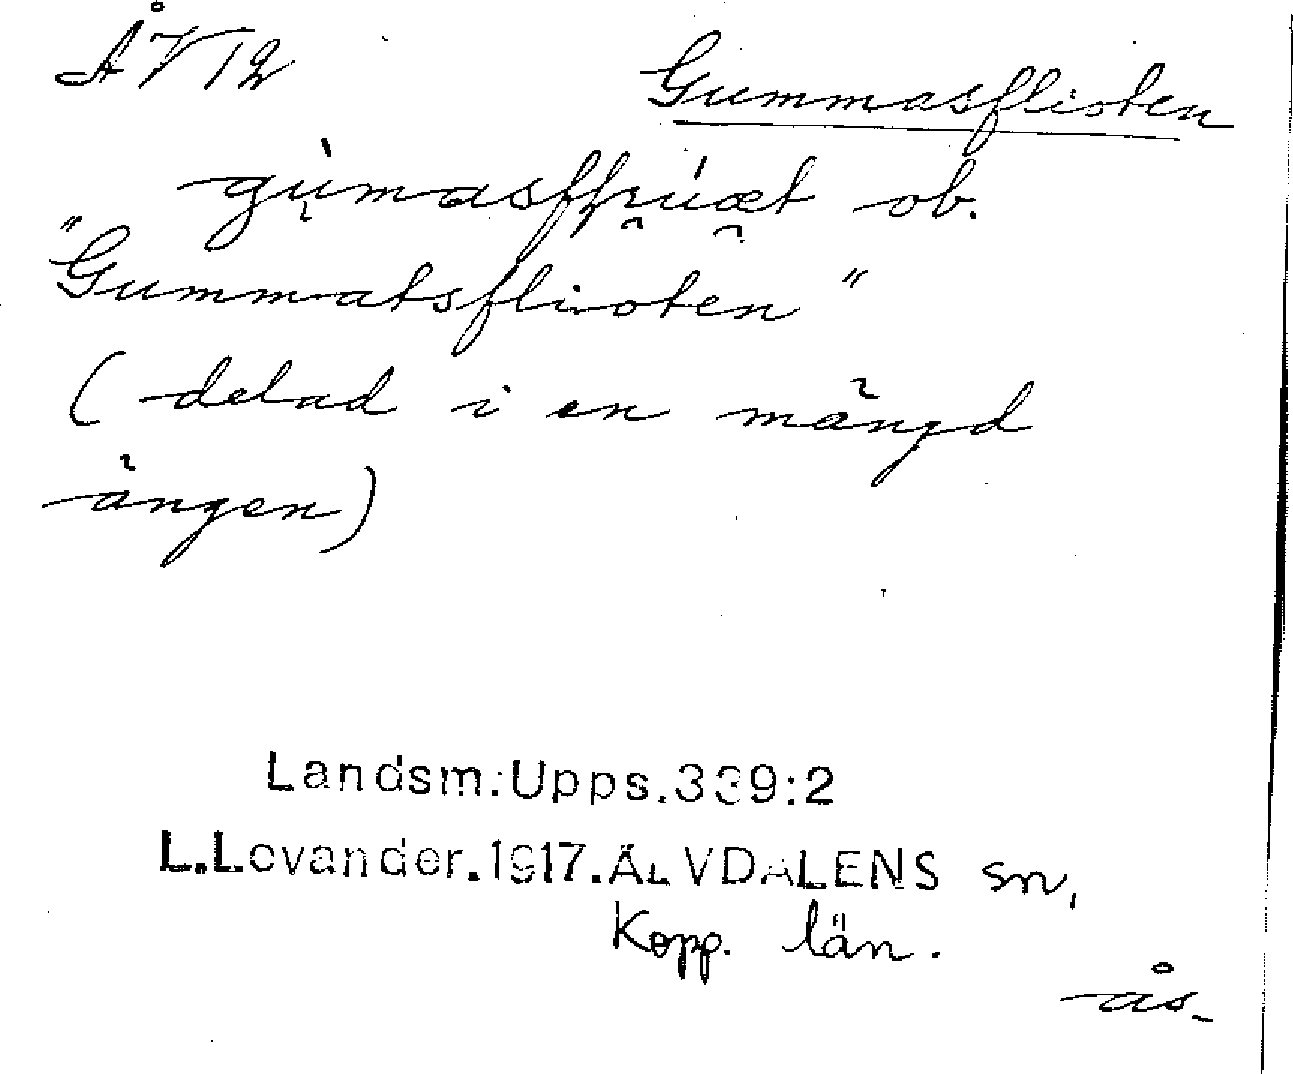 ÅV12
Gummasflioten
gùmasflríuæt ob.
"Gummatsflioten"
(delad i en mängd
ängen)
Landsm:Upps.339:2
L.Levander.1917.ÄLVDALENS sn,
Kopp. län.
ås-